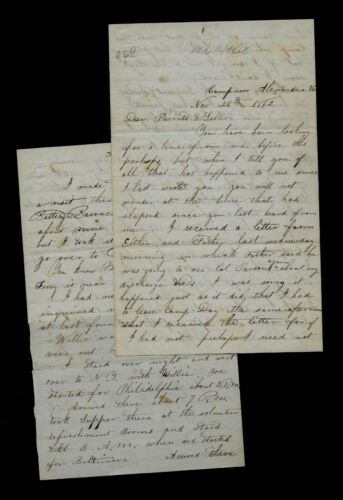 1
Camp near Alexandria Va
Nov 25th 1862
Dear Parents & Sister
You have been looking
for a line from me before this
perhaps but when I tell you of
all that has happened to me since
I last wrote you you will not
wonder at the time that had
elapsed since you last heard from
me. I received a letter from
Esther and Father last wednesday
morning in which Father said he
was going to see Col Parsons about my
discharge &c. I was sorry it
happened just as it did, that I had
to leave Camp Day the same afternoon
that I received the letter for if
I had not perhaps I need not
3
I made
a visit there
Battery Barrac
but I took
go over to
You know
Ferry is near
I had
at last found
Willie was
were out
I staid over night and went
over to N.Y. with Willie. We
started for Philadelphia about
Arrived there about 7 P.M.
took supper there at the volunteer
refreshment rooms and staid
till 3 A.M. when we started
for Baltimore Arrived there